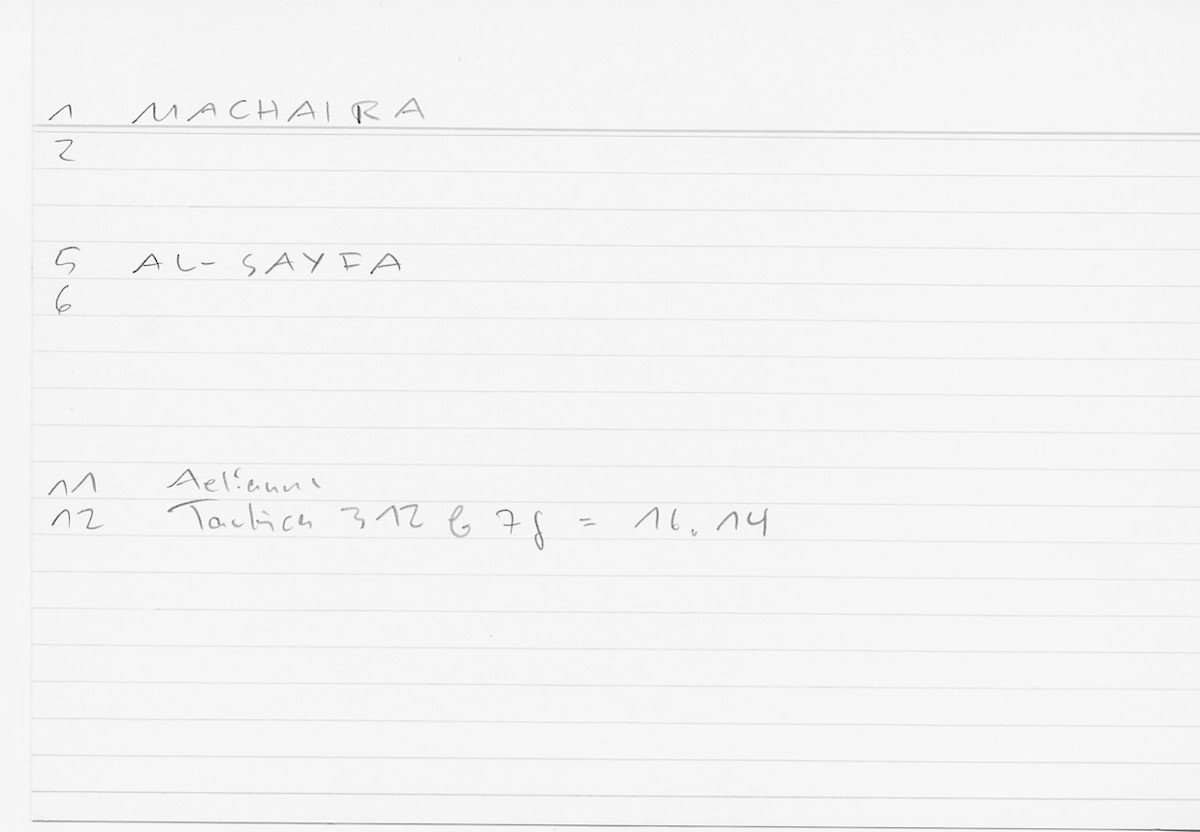 1 MACHAIRA
2
5 AL-SAYFA
6
11 Aelianus
12 Tactica 312 b 7f = 16.14